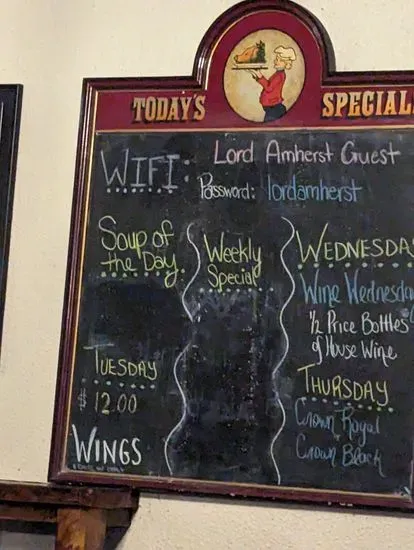 TODAY'S SPECIAL
WIFI: Lord Amherst Guest
Password: lordamherst
Soup of
the Day
TUESDAY
$12.00
WINGS
Weekly
Special
WEDNESDA
Wine Wednesday
1/2 Price Bottles
of House Wine
THURSDAY
Crown Royal
Crown Black